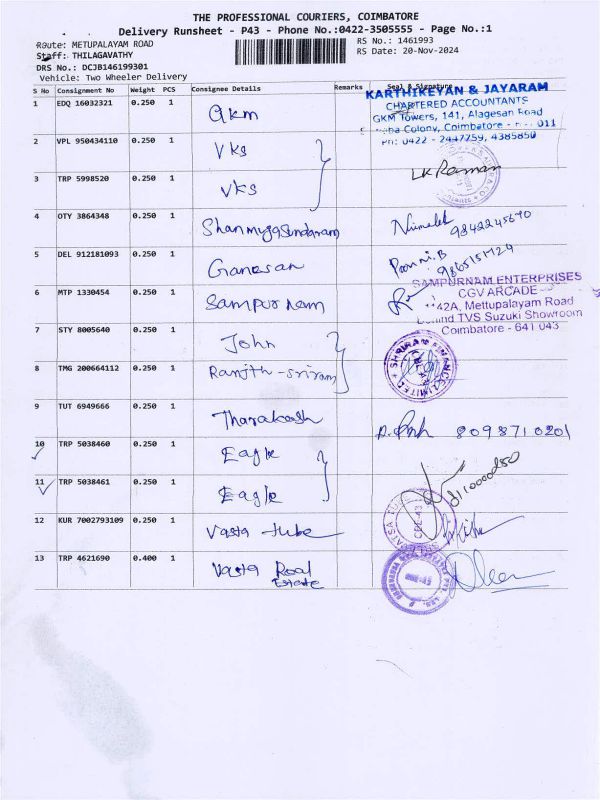 THE PROFESSIONAL COURIERS, COIMBATORE
Delivery Runsheet - P43 - Phone No.:0422-3505555 - Page No.:1
Route: METUPALAYAM ROAD
RS No.: 1461993
Staff: THILAGAVATHY
RS Date: 20-Nov-2024
DRS No.: DCJB146199301
Vehicle: Two Wheeler Delivery
S No Consignment No Weight PCS Consignee Details Remarks Seal & Signature
KARTHIKEYAN & JAYARAM
CHARTERED ACCOUNTANTS
GKM Towers, 141, Alagesan Road
Colony, Coimbatore - 011
Ph: 0422 - 2447259, 4385850
1 EDQ 16032321 0.250 1 Gkm
2 VPL 950434110 0.250 1 Vks
3 TRP 5998520 0.250 1 Vks LK Raman
4 OTY 3864348 0.250 1 Shanmugasundaram 9842245670
5 DEL 912181093 0.250 1 Ganesan
6 MTP 1330454 0.250 1 Sampurnam
SAMPURNAM ENTERPRISES
CGV ARCADE
42A, Mettupalayam Road
Behind TVS Suzuki Showroom
Coimbatore - 641 043
7 STY 8005640 0.250 1 John
8 TMG 200664112 0.250 1 Ranjth - Sriram
SHRIRAM FINANCE LIMITED
9 TUT 6949666 0.250 1 8098710201
10 TRP 5038460 0.250 1 Eagle
11 TRP 5038461 0.250 1 Eagle
12 KUR 7002793109 0.250 1 Vasta tube
CBE-43
13 TRP 4621690 0.400 1 Vasta Real
Estate